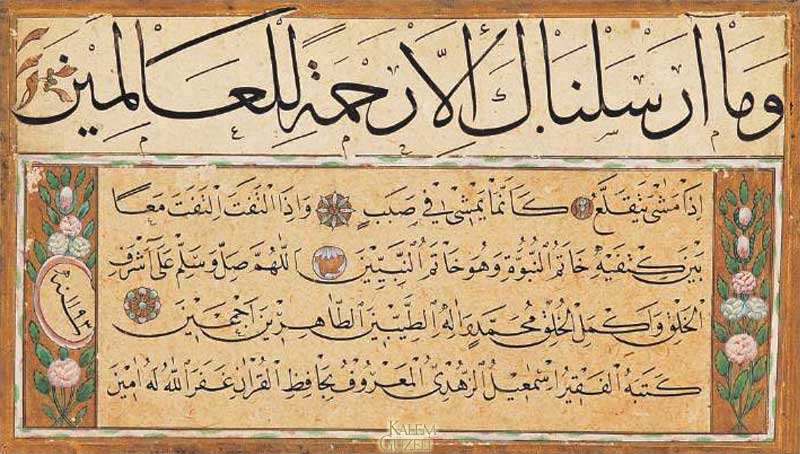 وَمَا أَرْسَلْنَاكَ إِلَّا رَحْمَةً لِلْعَالَمِينَ
اِذَا مَشٰى يَتَقَلَّعُ كَاَنَّمَا يَمْشٖى فٖى صَبَبٍ وَاِذَا الْتَفَتَ اِلْتَفَتَ مَعًا
بَيْنَ كَتِفَيْهِ خَاتَمُ النُّبُوَّةِ وَهُوَ خَاتَمُ النَّبِيّٖينَ اَللّٰهُمَّ صَلِّ وَسَلِّمْ عَلٰى اَشْرَفِ
الْخَلْقِ وَاَكْمَلِ الْخُلْقِ مُحَمَّدٍ وَاٰلِهِ الطَّيِّبٖينَ الطَّاهِرٖينَ اَجْمَعٖينَ
كَتَبَهُ الْفَقٖيرُ اِسْمٰعٖيلُ الزُّهْدٖى الْمَعْرُوفُ بِحَافِظِ الْقُرْاٰنِ غَفَرَ اللّٰهُ لَهُ اٰمٖينَ
KALEM
GÜZELİ